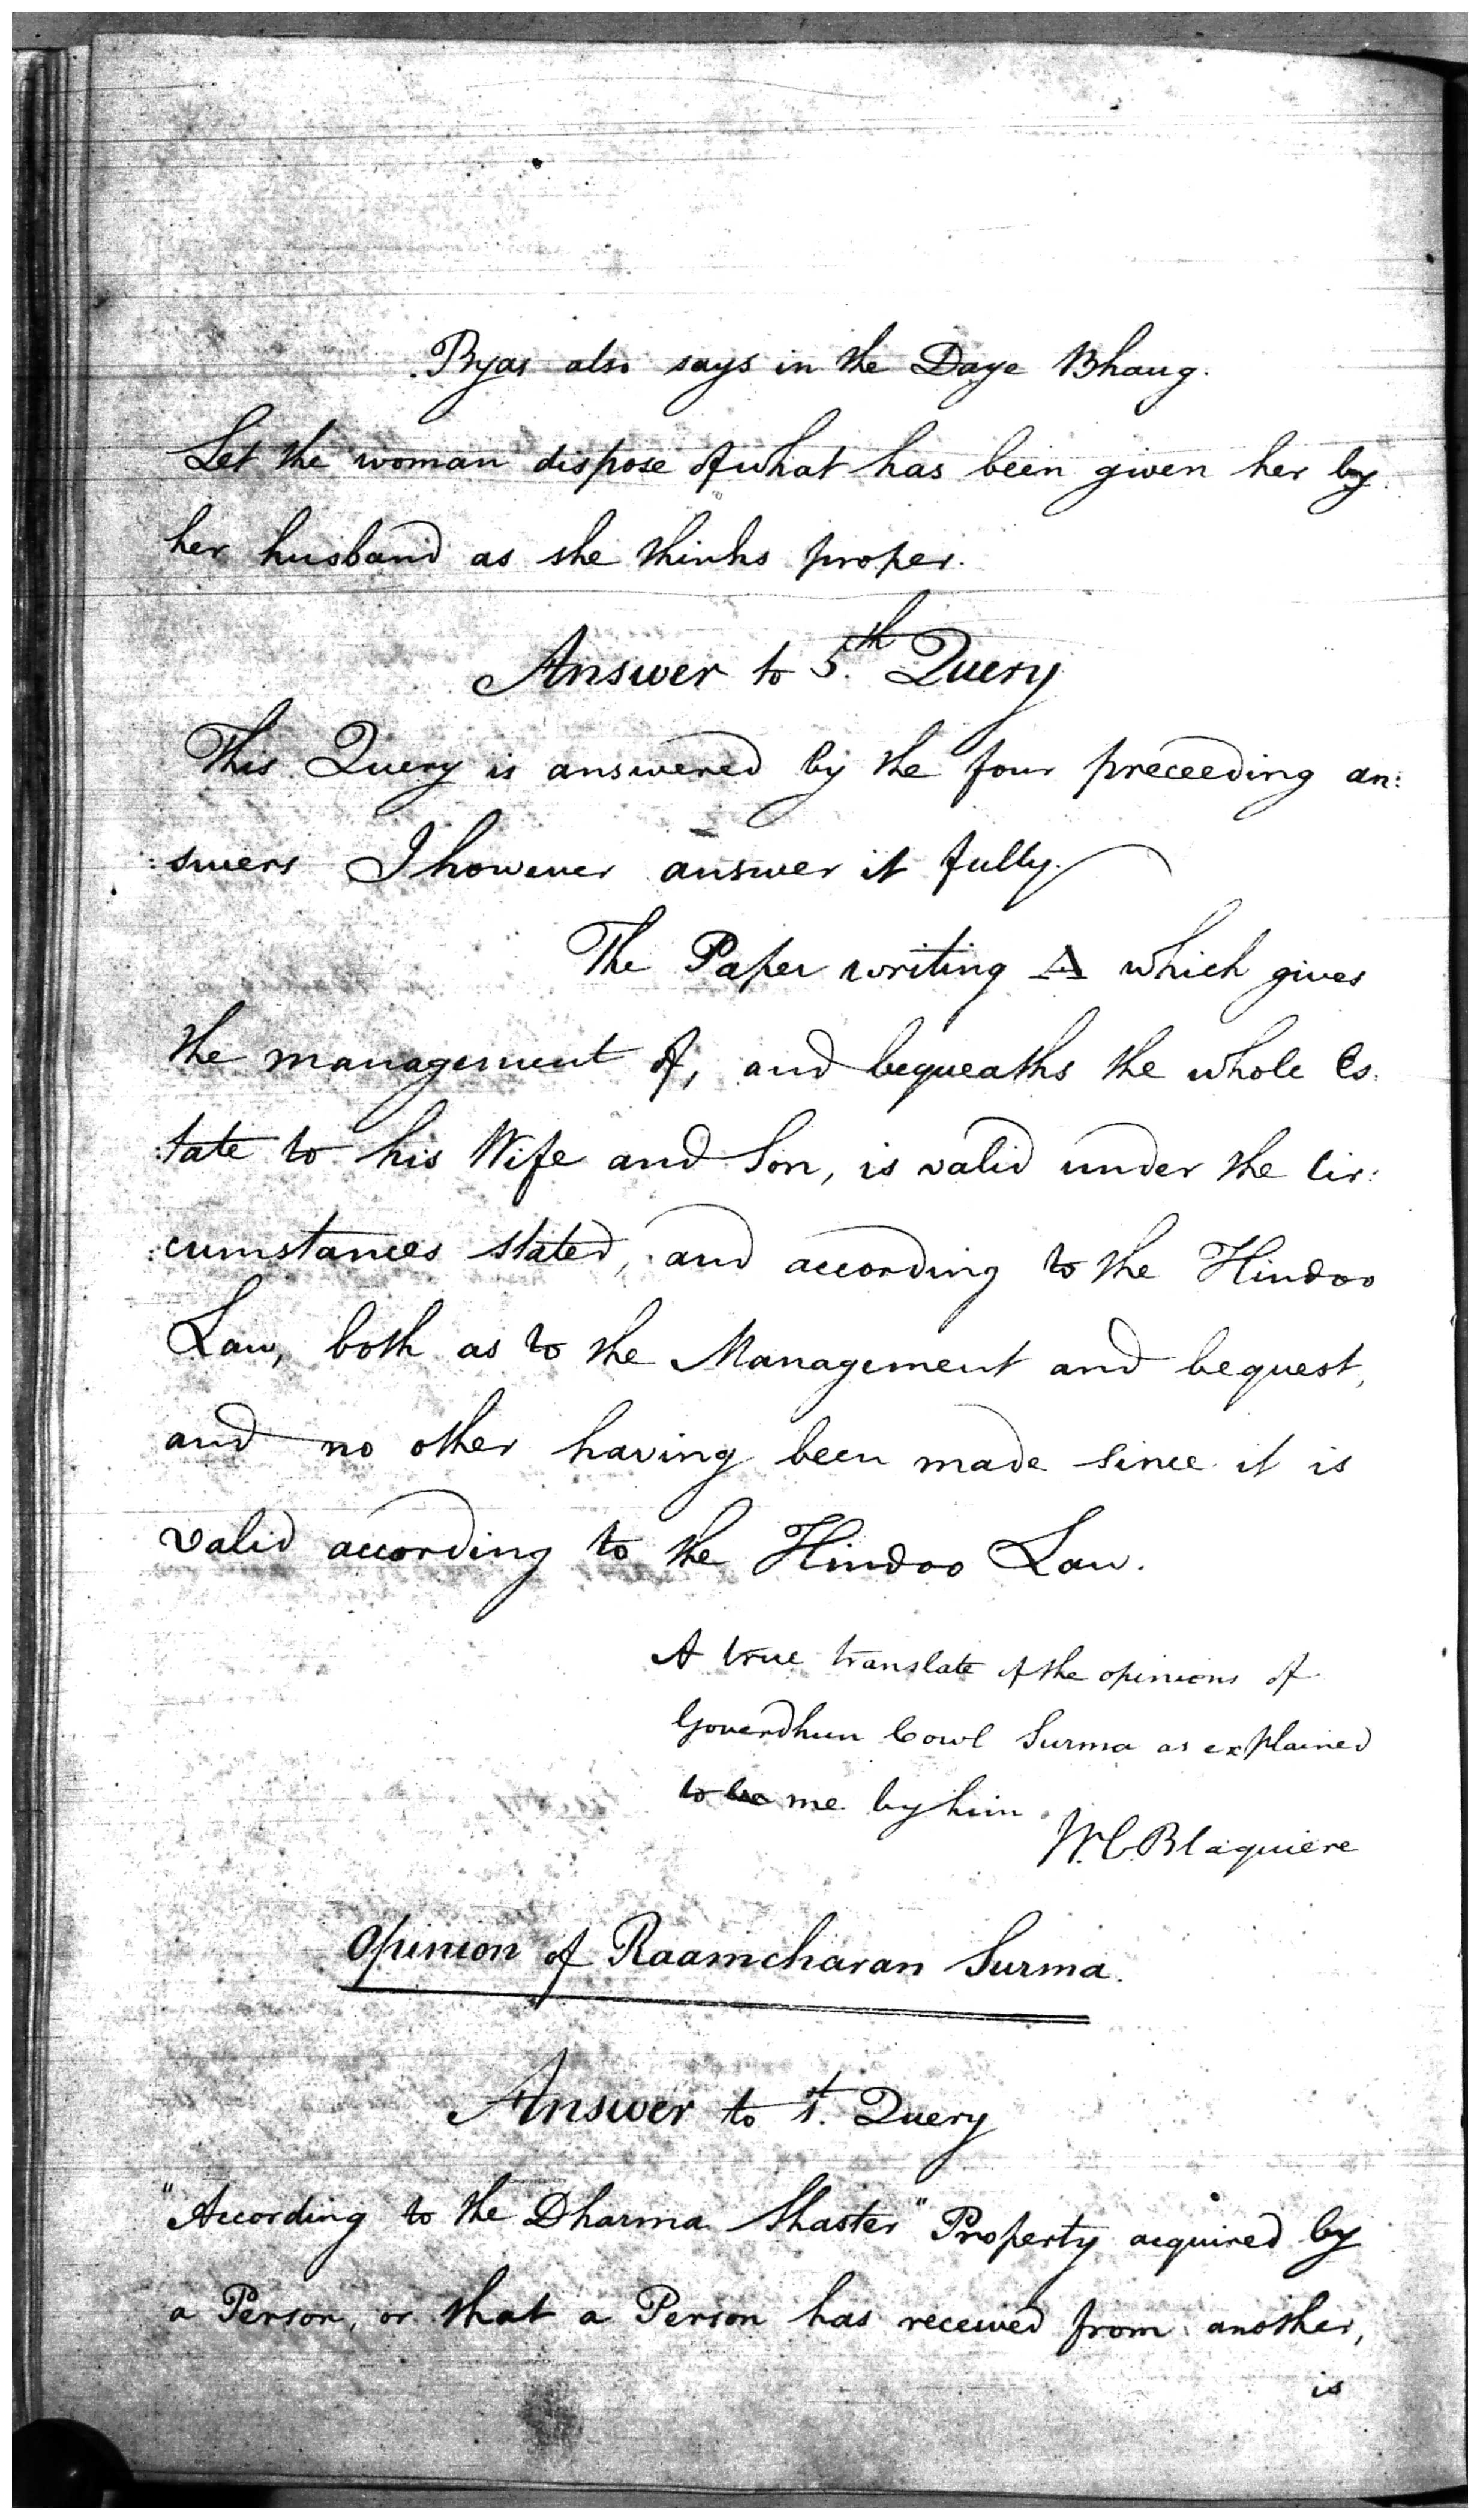 Byas also says in the Daye Bhaug.
Let the woman dispose of what has been given her by
her husband as she thinks proper.
Answer to 5.th Query
This Query is answered by the four preceeding an:
:swers I however answer it fully.
The Paper writing A which gives
the management of, and bequeaths the whole Es:
:tate to his Wife and Son, is valid under the Cir:
:cumstances stated, and according to the Hindoo
Law, both as to the Management and bequest,
and no other having been made since it is
valid according to the Hindoo Law.
A true translate of the opinions of
Goverdhun Cowl Surma as explained
to be me by him
W. C. Blaquiere
Opinion of Raamcharan Surma.
Answer to 1.t Query
"According to the Dharma Shaster" Property acquired by
a Person, or that a Person has received from another,
is